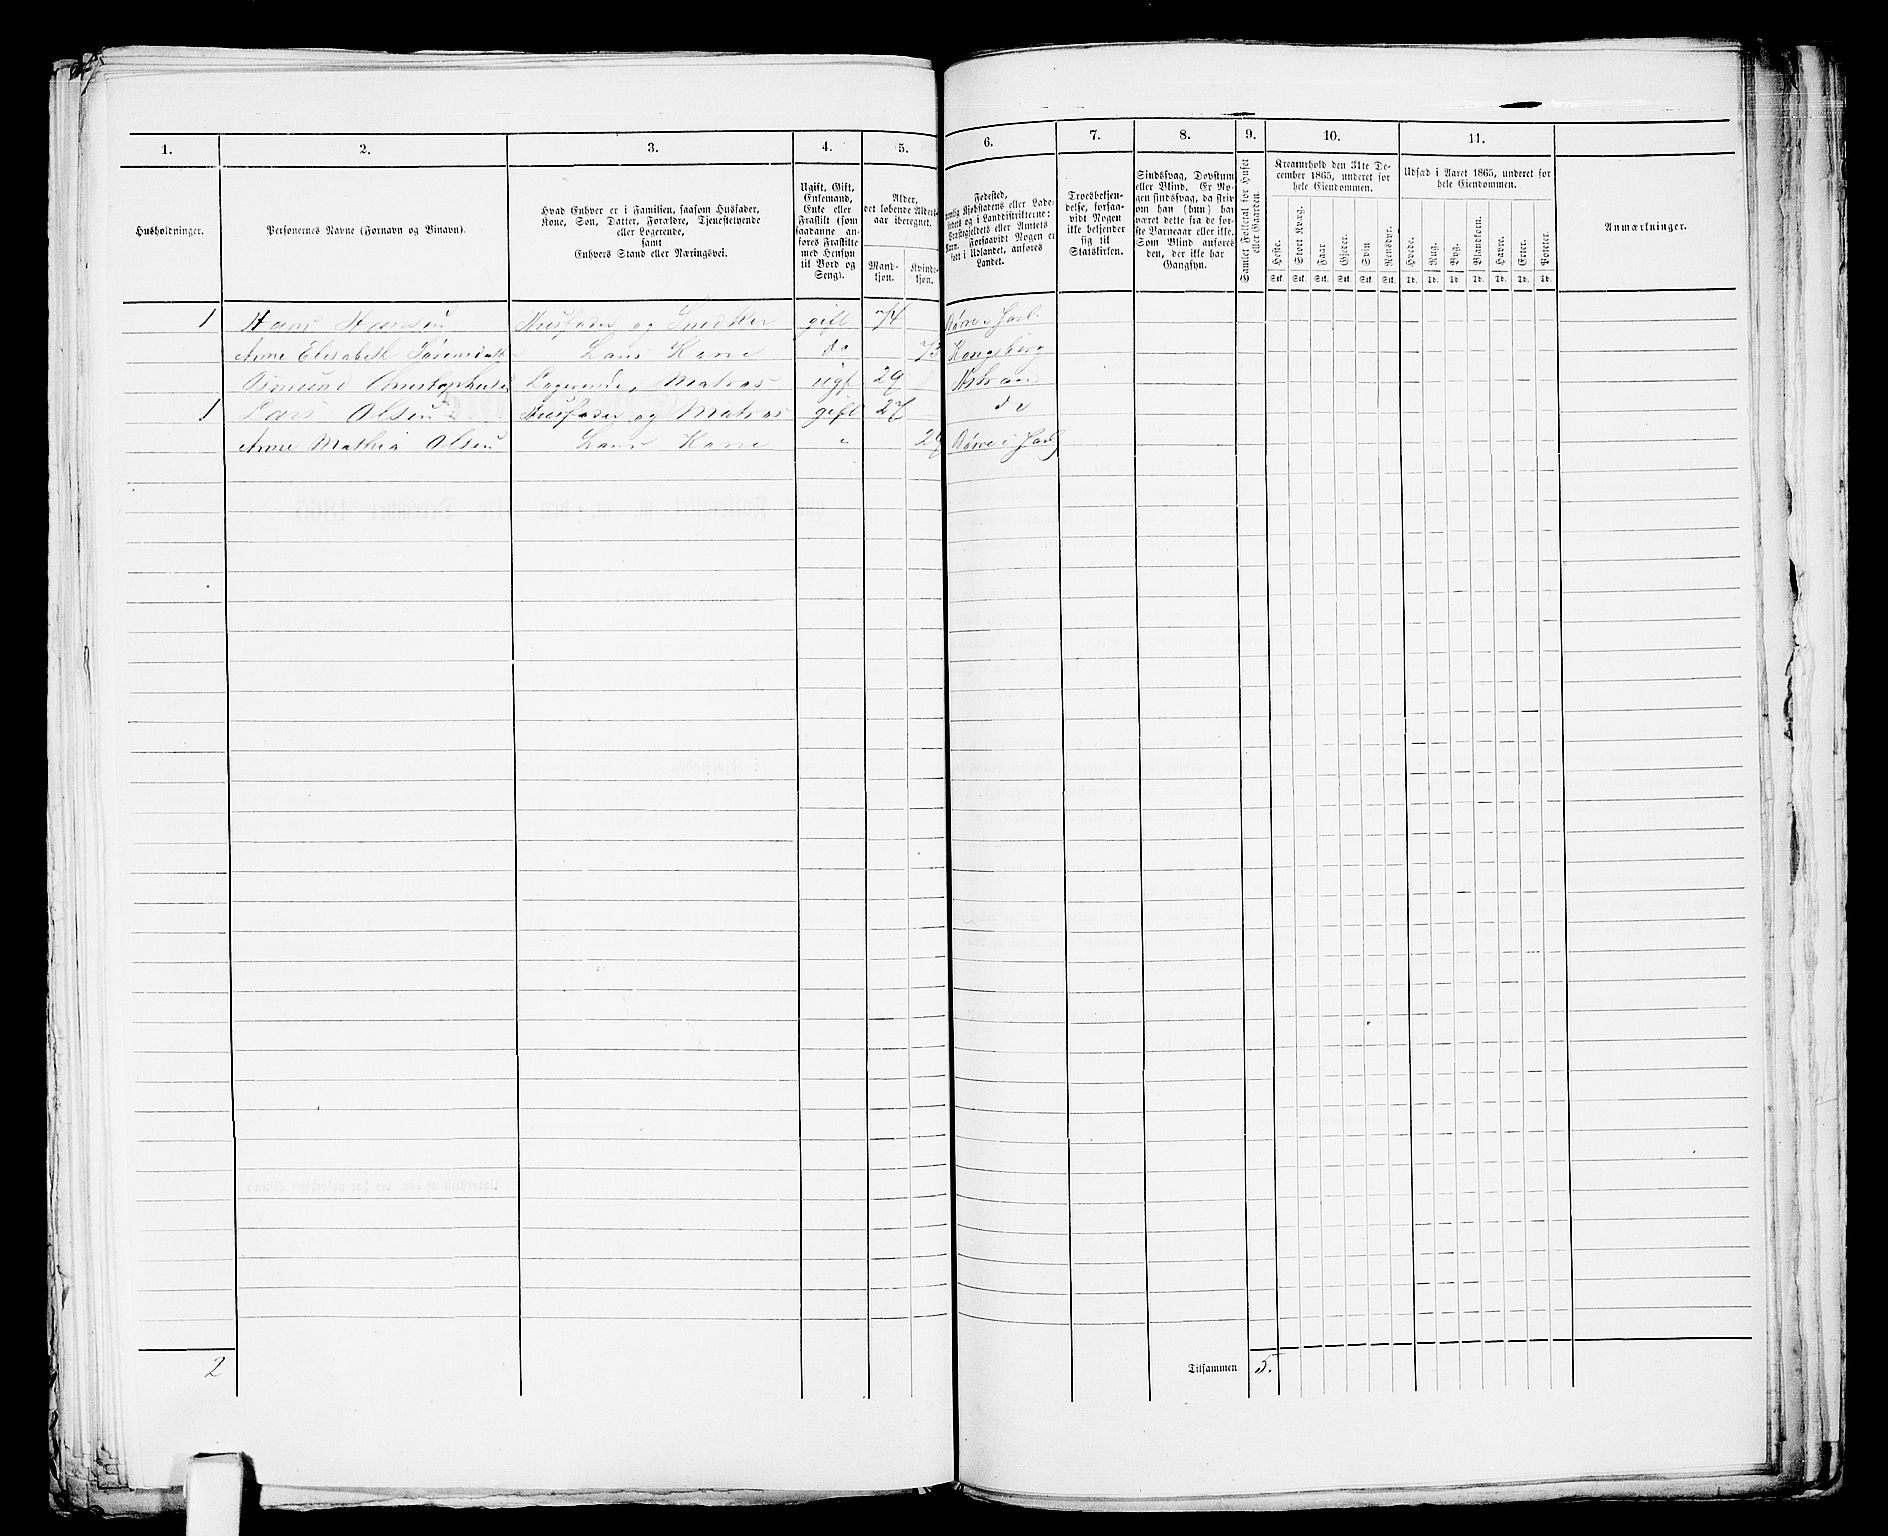 1. 2. 3. 4. 5. 6. 7. 8. 9. 10. 11.
Husholdninger.
Personernes Navne (Fornavn og Binavn).
Hvad Enhver er i Familien, saasom Husfader,
Kone, Søn, Datter, Forældre, Tjenestetyende
eller Logerende,
samt
Enhvers Stand eller Næringsvei.
Ugift, Gift,
Enkemand,
Enke eller
Fraskilt (som
saadanne an-
føres Fraskilte
med Hensyn
til Bord og
Seng).
Alder,
det løbende Alders-
aar iberegnet.
Mand-
kjøn.
Kvinde-
kjøn.
Fødested,
Landet.
Troesbekjen-
delse, forsaa-
vidt Nogen
ikke bekjender
sig til
Statskirken.
Sindssvag, Døvstum
eller Blind. Er No-
gen sindssvag, da skriv
om han (hun) har
været dette fra de før-
ste Barneaar eller ikke.
Som Blind anføres
den, der ikke har
Gangsyn.
Samlet Folketal for Huset
eller Gaarden.
Kreaturhold den 31te De-
cember 1865, underet for
hele Eiendommen.
Heste. Stort Kvæg. Faar. Gjeder. Svin Rensdyr.
Stk. Stk. Stk. Stk. Stk. Stk.
Udsæd i Aaret 1865, underet for
hele Eiendommen.
Hvede. Rug. Byg. Blandkorn. Havre. Erter. Poteter.
Td. Td. Td. Td. Td. Td. Td.
Anmærkninger.
1 Hans Hansen Husfader og Snedker gift 74 Borre i Jarl.
Anne Elisabeth Sørensdatter Hans Kone do 73 Kongsberg
Osmund Christophersen Logerende, Matros ugf 29
1 Lars Olsen Husfader og Matros gift 27 do
Anne Mathia Olsen Hans Kone " 29 Borre i Jarl
2 Tilsammen 5.